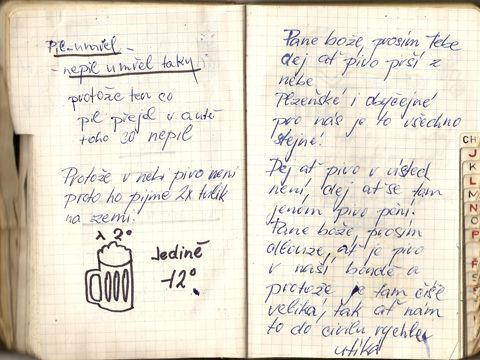 Pil - umřel -
- nepil umřel taky
protože ten co
pil přejel v autě
toho co nepil
Protože v nebi pivo není
proto ho pijme 2x tolik
na zemi!
2°
Jedině
12°
Pane bože, prosím tebe
dej ať pivo prší z
nebe
Plzeňské i obyčejné
pro nás je to všechno
stejné!
Dej ať pivo v
není, dej ať se tam
jenom pivo pění!
Pane bože, prosím
ať je pivo
v naší a
protože je tam
veliká, tak ať nám
to do civilu rychle
utíká
CH
J
K
L
M
N
O
P
Ř
S